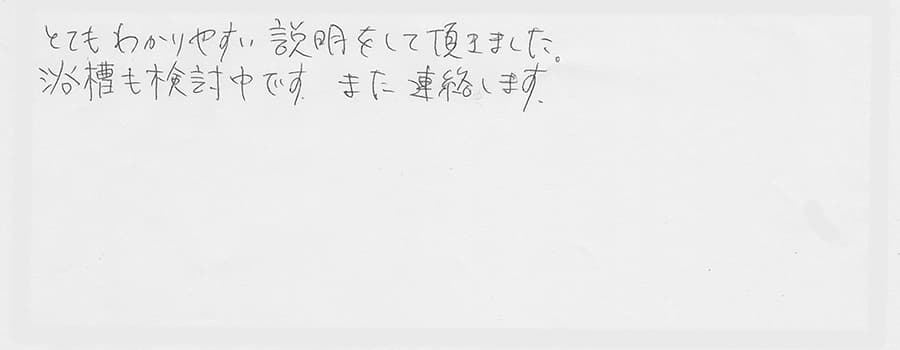 とてもわかりやすい説明をして頂きました。
浴槽も検討中です。また連絡します。